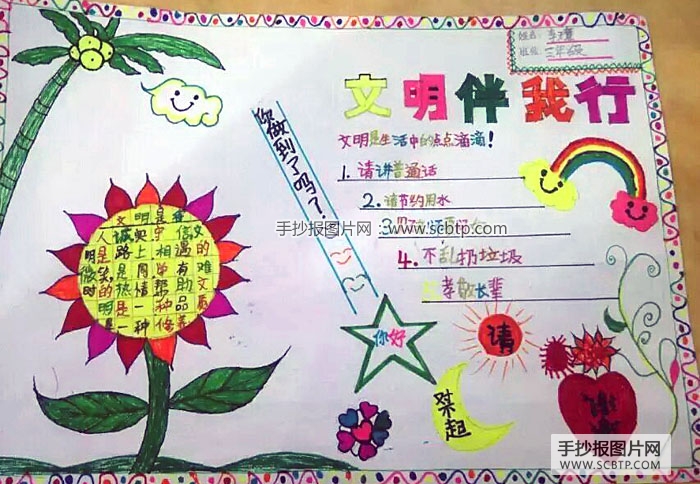 姓名:
班级: 三年级
文明伴我行
文明是生活中的点点滴滴!
1. 请讲普通话
2. 请节约用水
3
4. 不乱扔垃圾
孝敬长辈
你做到了吗?
文明是
人诚实守信文
明是路上相遇的
微笑是同学有难
时的热情帮助文
明是一种品质
是一种修养
你好
请
起
手抄报图片网 www.scbtp.com
手抄报图片网
WWW.SCBTP.COM